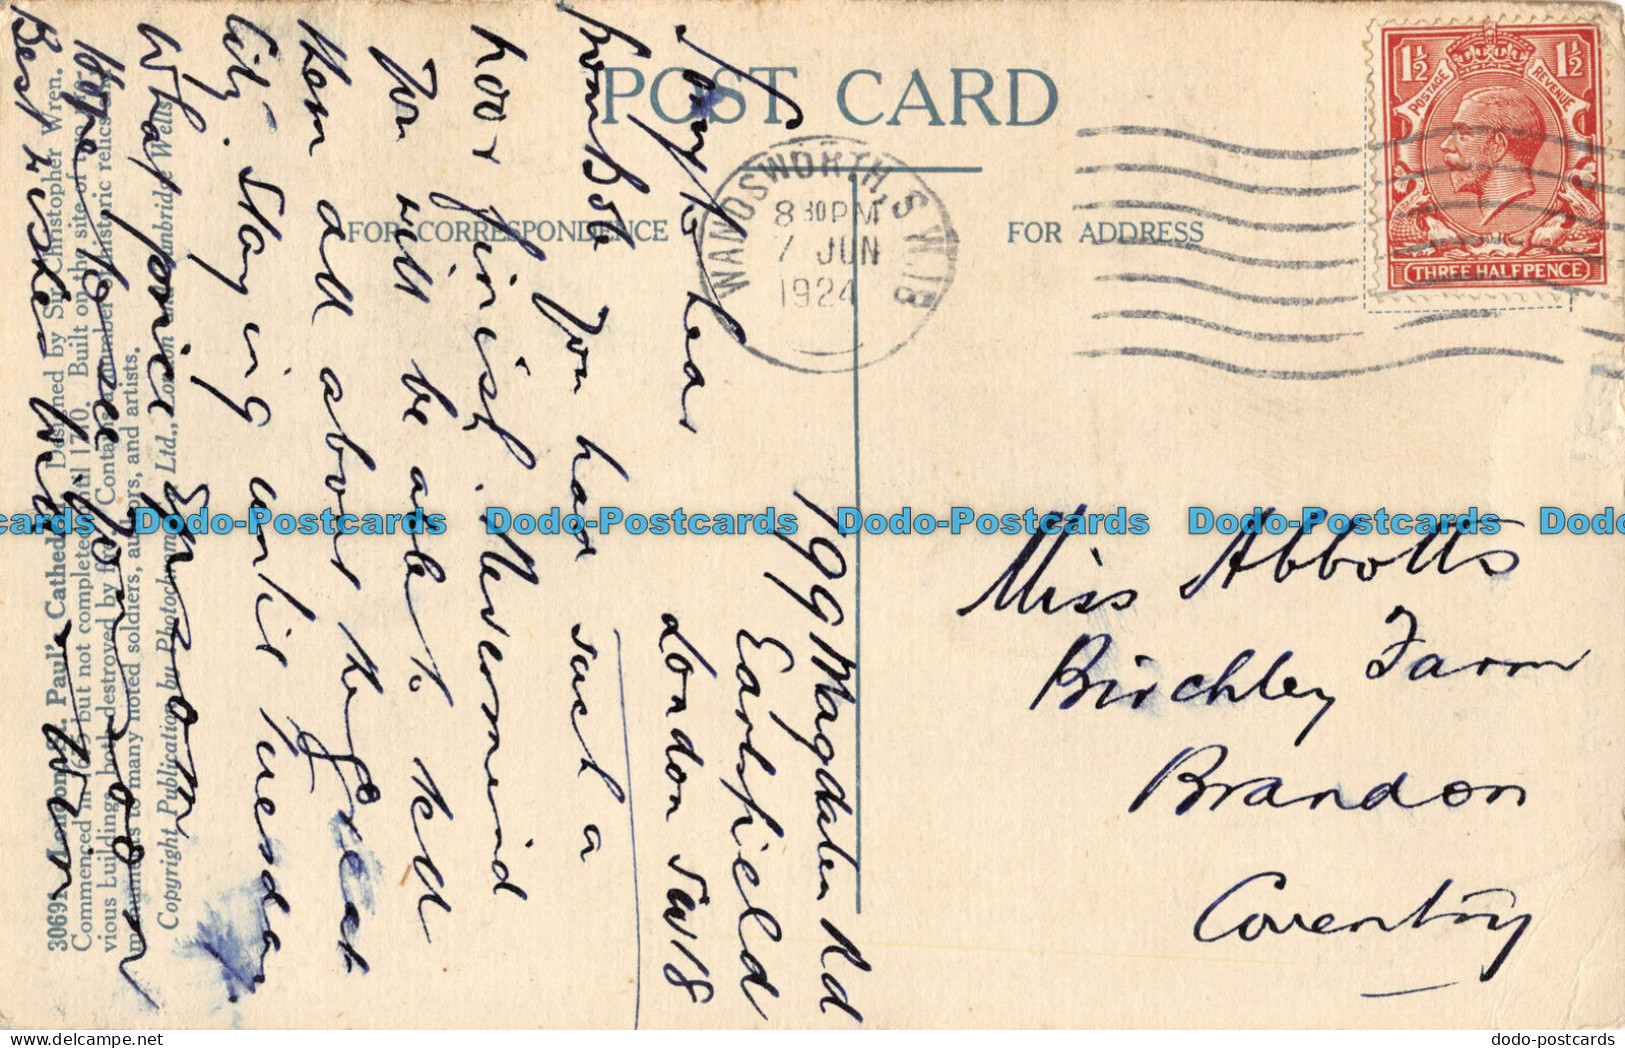 POST CARD
FOR CORRESPONDENCE
FOR ADDRESS
WANDSWORTH, S.W.18
8 30 PM
7 JUN
1924
1½ 1½
POSTAGE REVENUE
THREE HALFPENCE
199 Magdalen Rd
Earlsfield
London SW18
Sorry to hear
from Bob you had such a
poor finish. Nevermind
you will be able to tell
them all about the great
city. Staying until Tuesday.
What price Epsom
Hope to see you soon
Best wishes
Miss Abbotts
Birchley Farm
Brandon
Coventry
30691 London, St. Paul's Cathedral. Designed by Sir Christopher Wren.
Commenced in 1675 but not completed until 1710. Built on the site of
vious buildings both destroyed by fire. Contains a number of historic relics and
monuments to many noted soldiers, authors, and artists.
Copyright Publication by Photochrom Co. Ltd., London and Tunbridge Wells.
Dodo-Postcards Dodo-Postcards Dodo-Postcards Dodo-Postcards
dodo-postcards